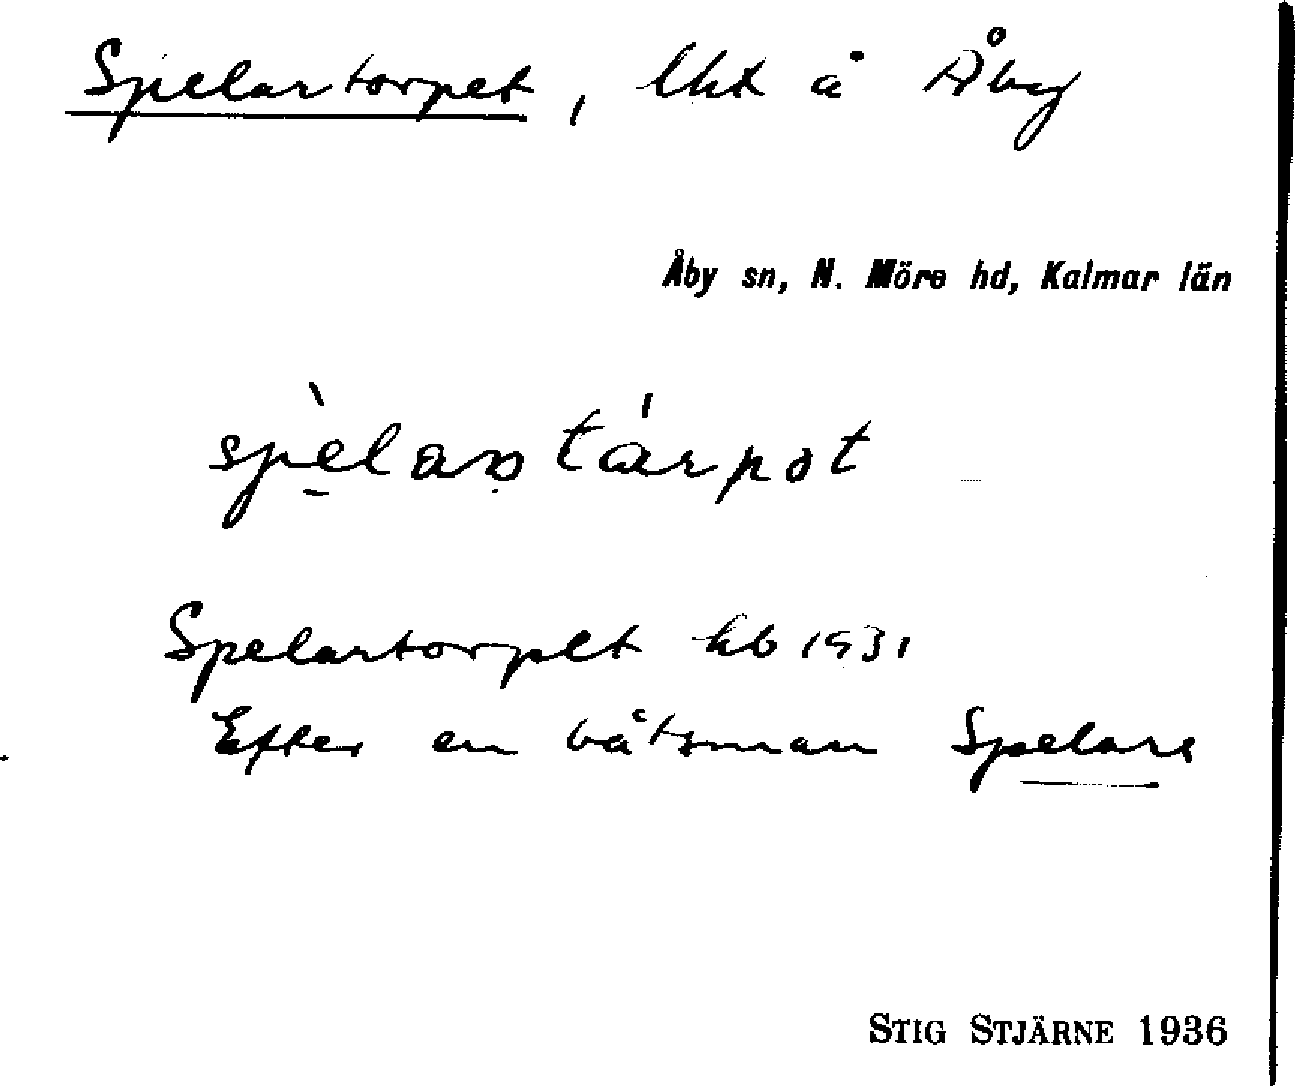 Spelartorpet, lht å Åby
Åby sn, N. Möre hd, Kalmar län
Spelartorpet kb 1931
Efter en båtsman Spelare
STIG STJÄRNE 1936